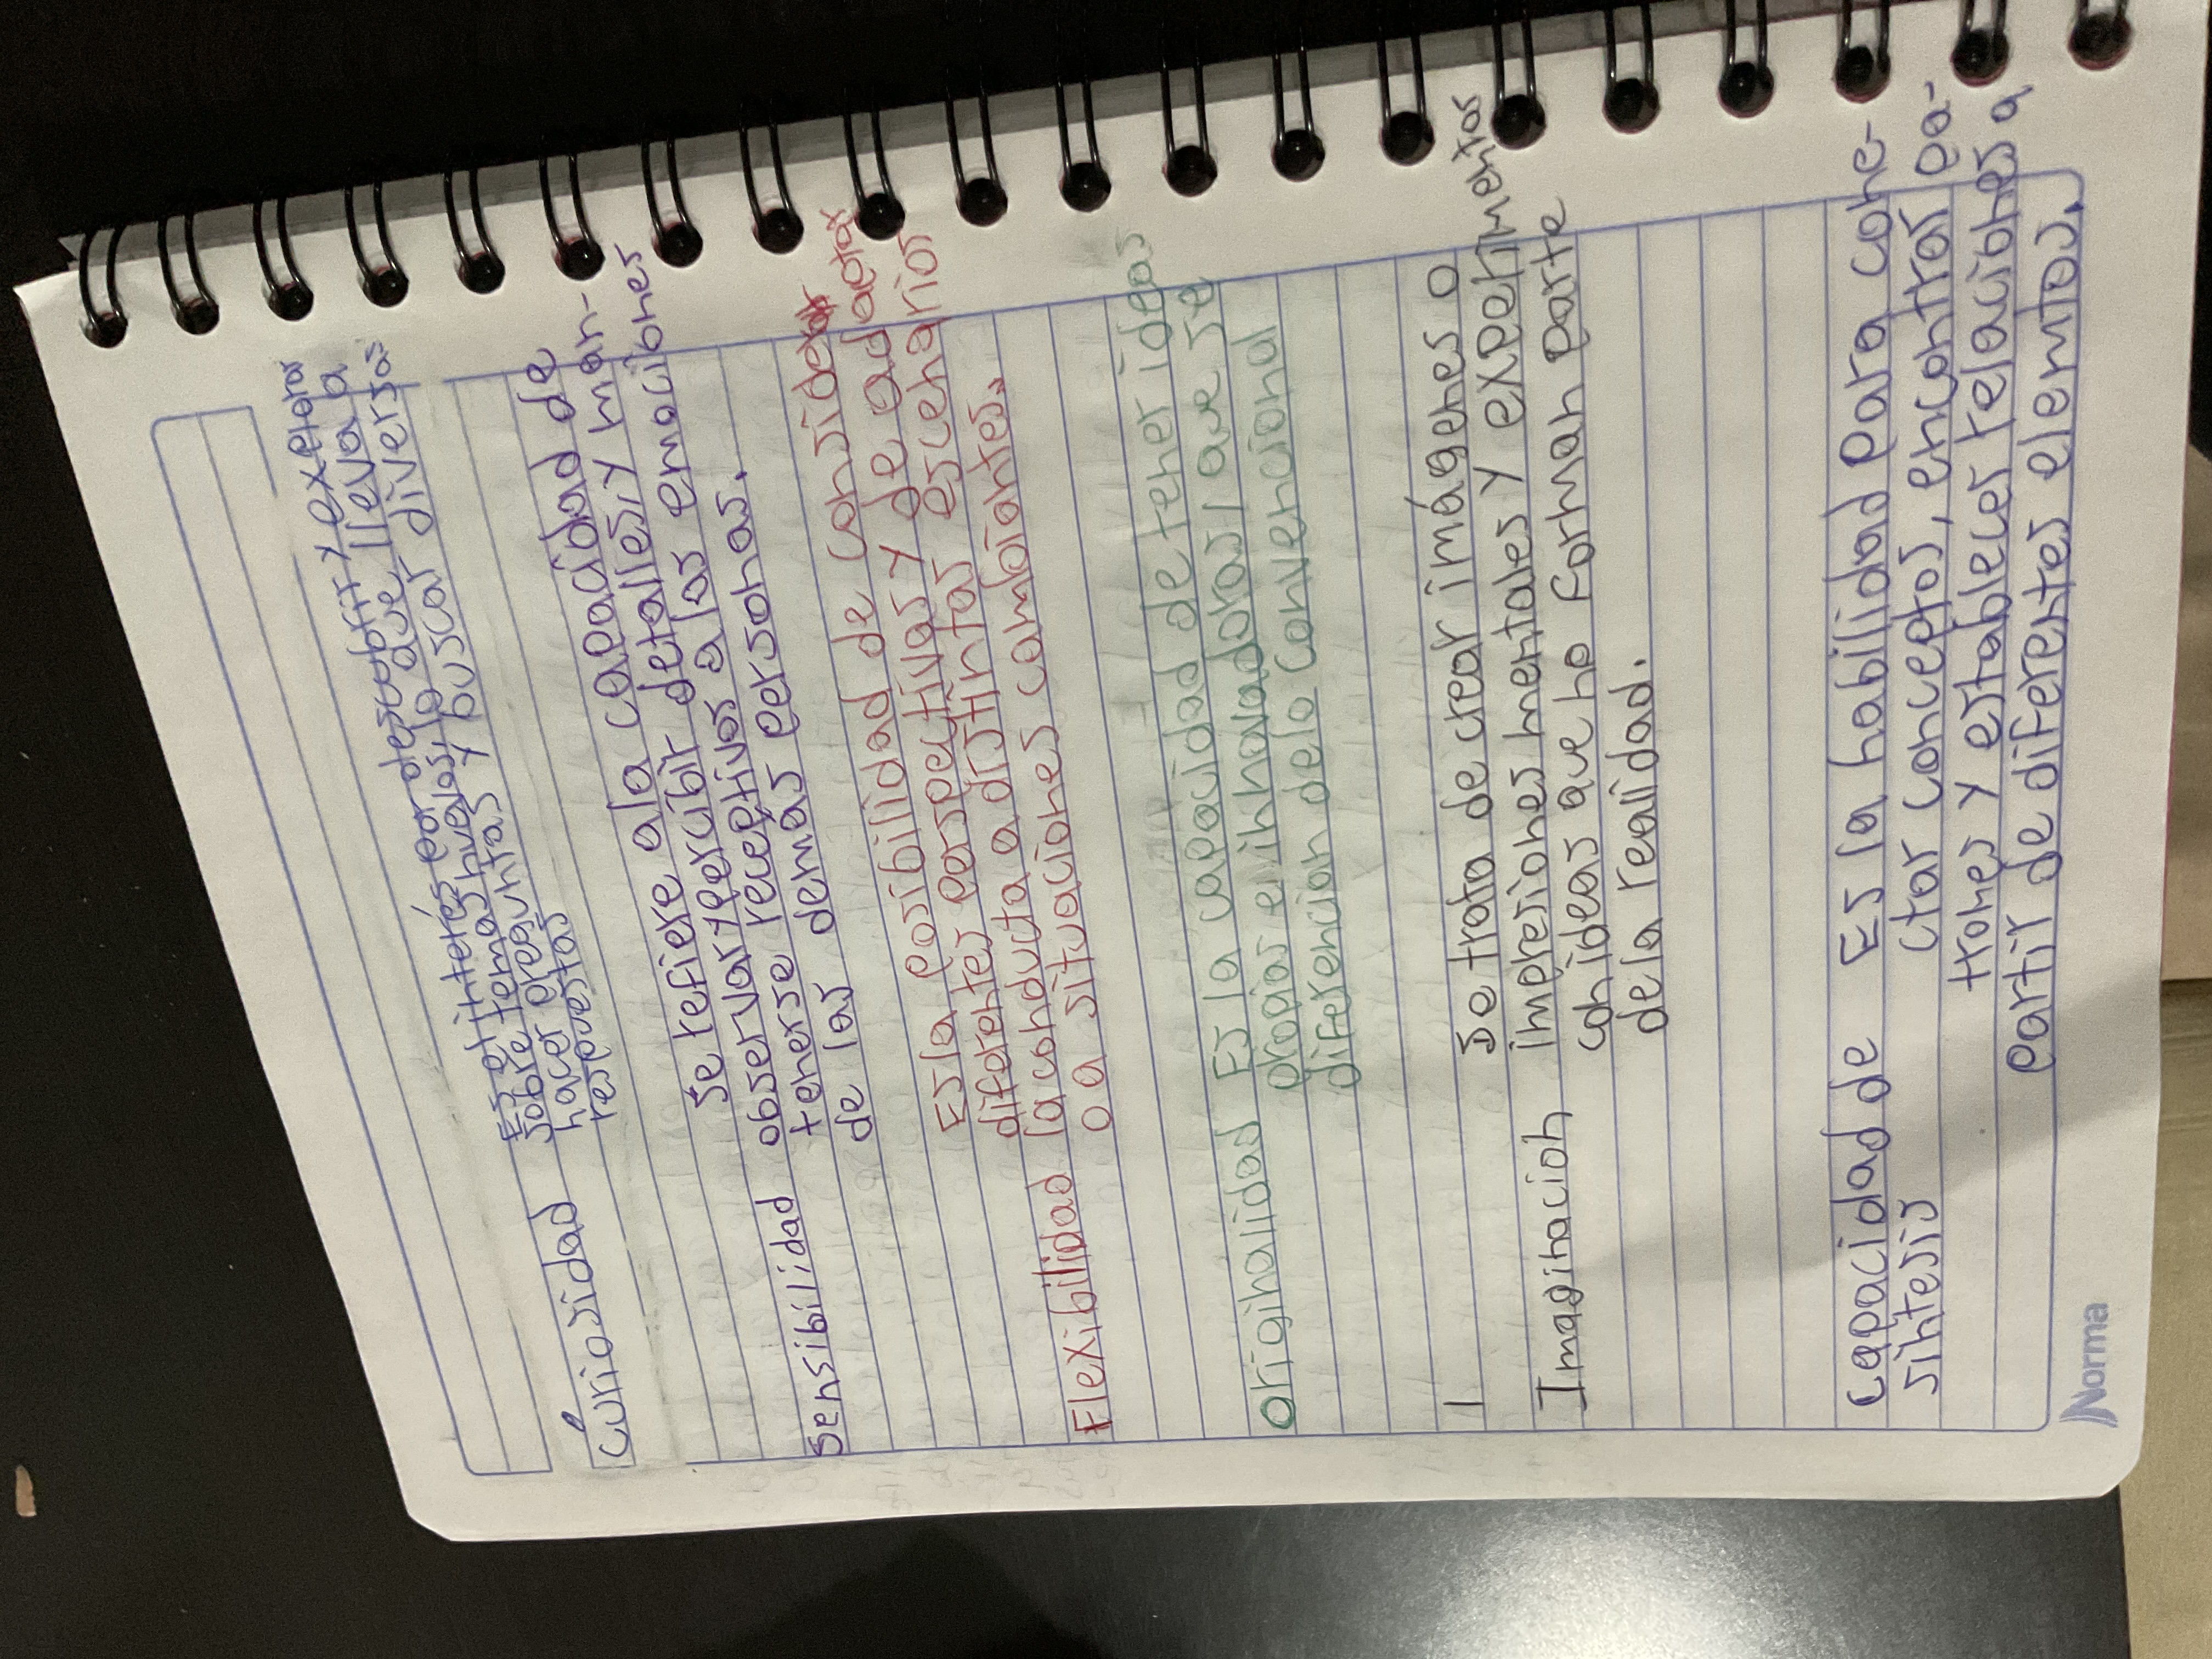 Es el interés por descubrir y explorar
sobre temas nuevos, lo que lleva a
Curiosidad hacer preguntas y buscar diversas
respuestas
Se refiere a la capacidad de
observar y percibir detalles, y man-
Sensibilidad tenerse receptivos a las emociones
de las demas personas.
Es la posibilidad de considerar
diferentes perspectivas y de adactar
Flexibilidad la conducta a distintas escenarios
o a situaciones cambiantes.
originalidad Es la capacidad de tener ideas
propias e innovadoras, que se
diferencian de lo convencional
Se trata de crear imágenes o
Imaginacion impresiones mentales y experimentar
con ideas que no forman parte
de la realidad.
capacidad de Es la habilidad para cone-
sintesis ctar conceptos, encontrar pa-
trones y establecer relaciones a
partir de diferentes elemtos.
Norma